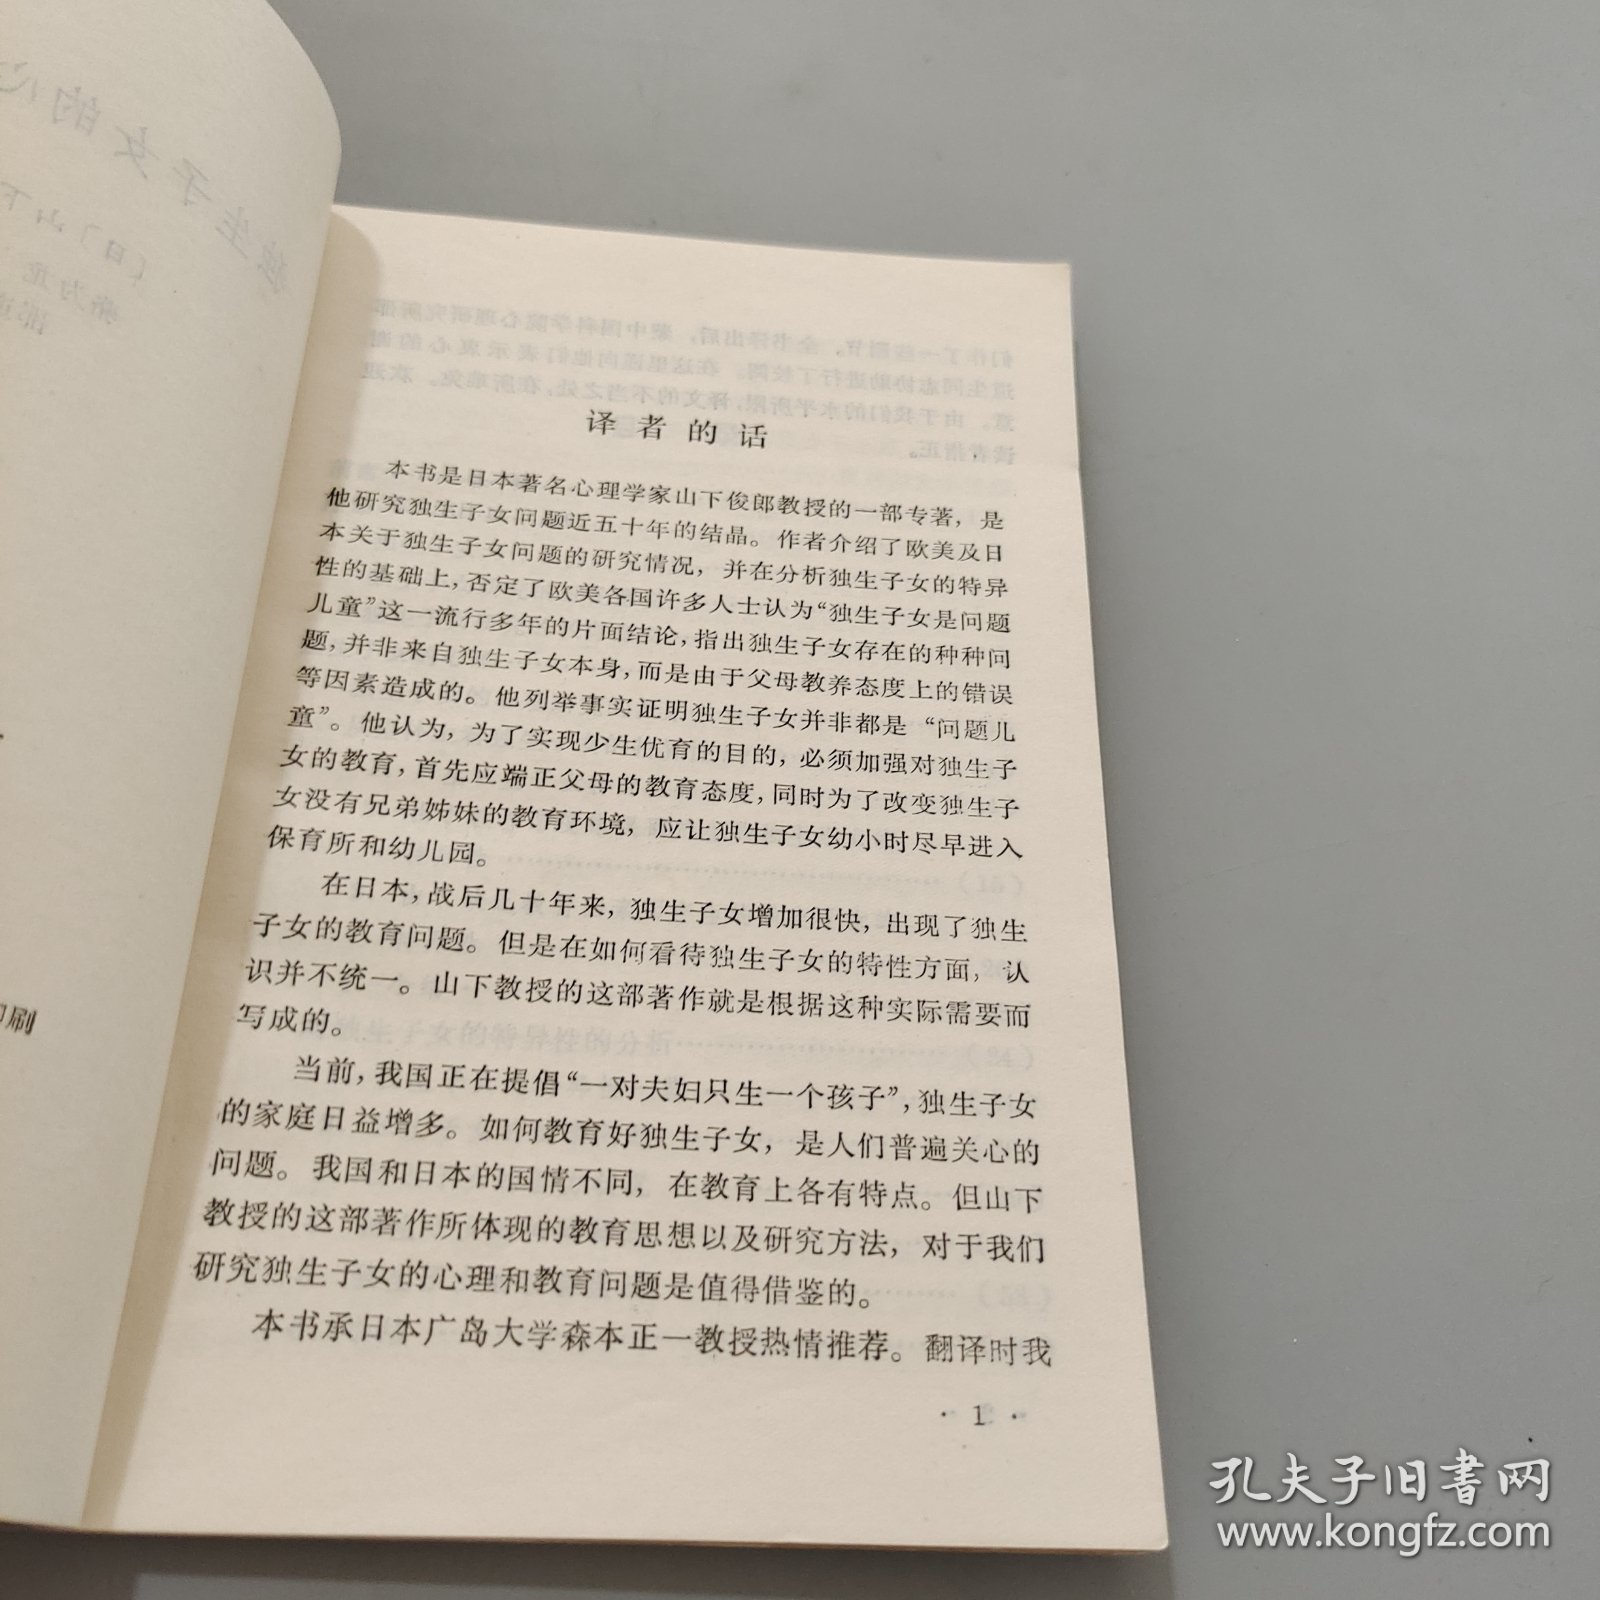 译者的话
本书是日本著名心理学家山下俊郎教授的一部专著，是
他研究独生子女问题近五十年的结晶。作者介绍了欧美及日
本关于独生子女问题的研究情况，并在分析独生子女的特异
性的基础上，否定了欧美各国许多人士认为“独生子女是问题
儿童”这一流行多年的片面结论，指出独生子女存在的种种问
题，并非来自独生子女本身，而是由于父母教养态度上的错误
等因素造成的。他列举事实证明独生子女并非都是“问题儿
童”。他认为，为了实现少生优育的目的，必须加强对独生子
女的教育，首先应端正父母的教育态度，同时为了改变独生子
女没有兄弟姊妹的教育环境，应让独生子女幼小时尽早进入
保育所和幼儿园。
在日本，战后几十年来，独生子女增加很快，出现了独生
子女的教育问题。但是在如何看待独生子女的特性方面，认
识并不统一。山下教授的这部著作就是根据这种实际需要而
写成的。
当前，我国正在提倡“一对夫妇只生一个孩子”，独生子女
的家庭日益增多。如何教育好独生子女，是人们普遍关心的
问题。我国和日本的国情不同，在教育上各有特点。但山下
教授的这部著作所体现的教育思想以及研究方法，对于我们
研究独生子女的心理和教育问题是值得借鉴的。
本书承日本广岛大学森本正一教授热情推荐。翻译时我
·1·
印刷
孔夫子旧书网
www.kongfz.com